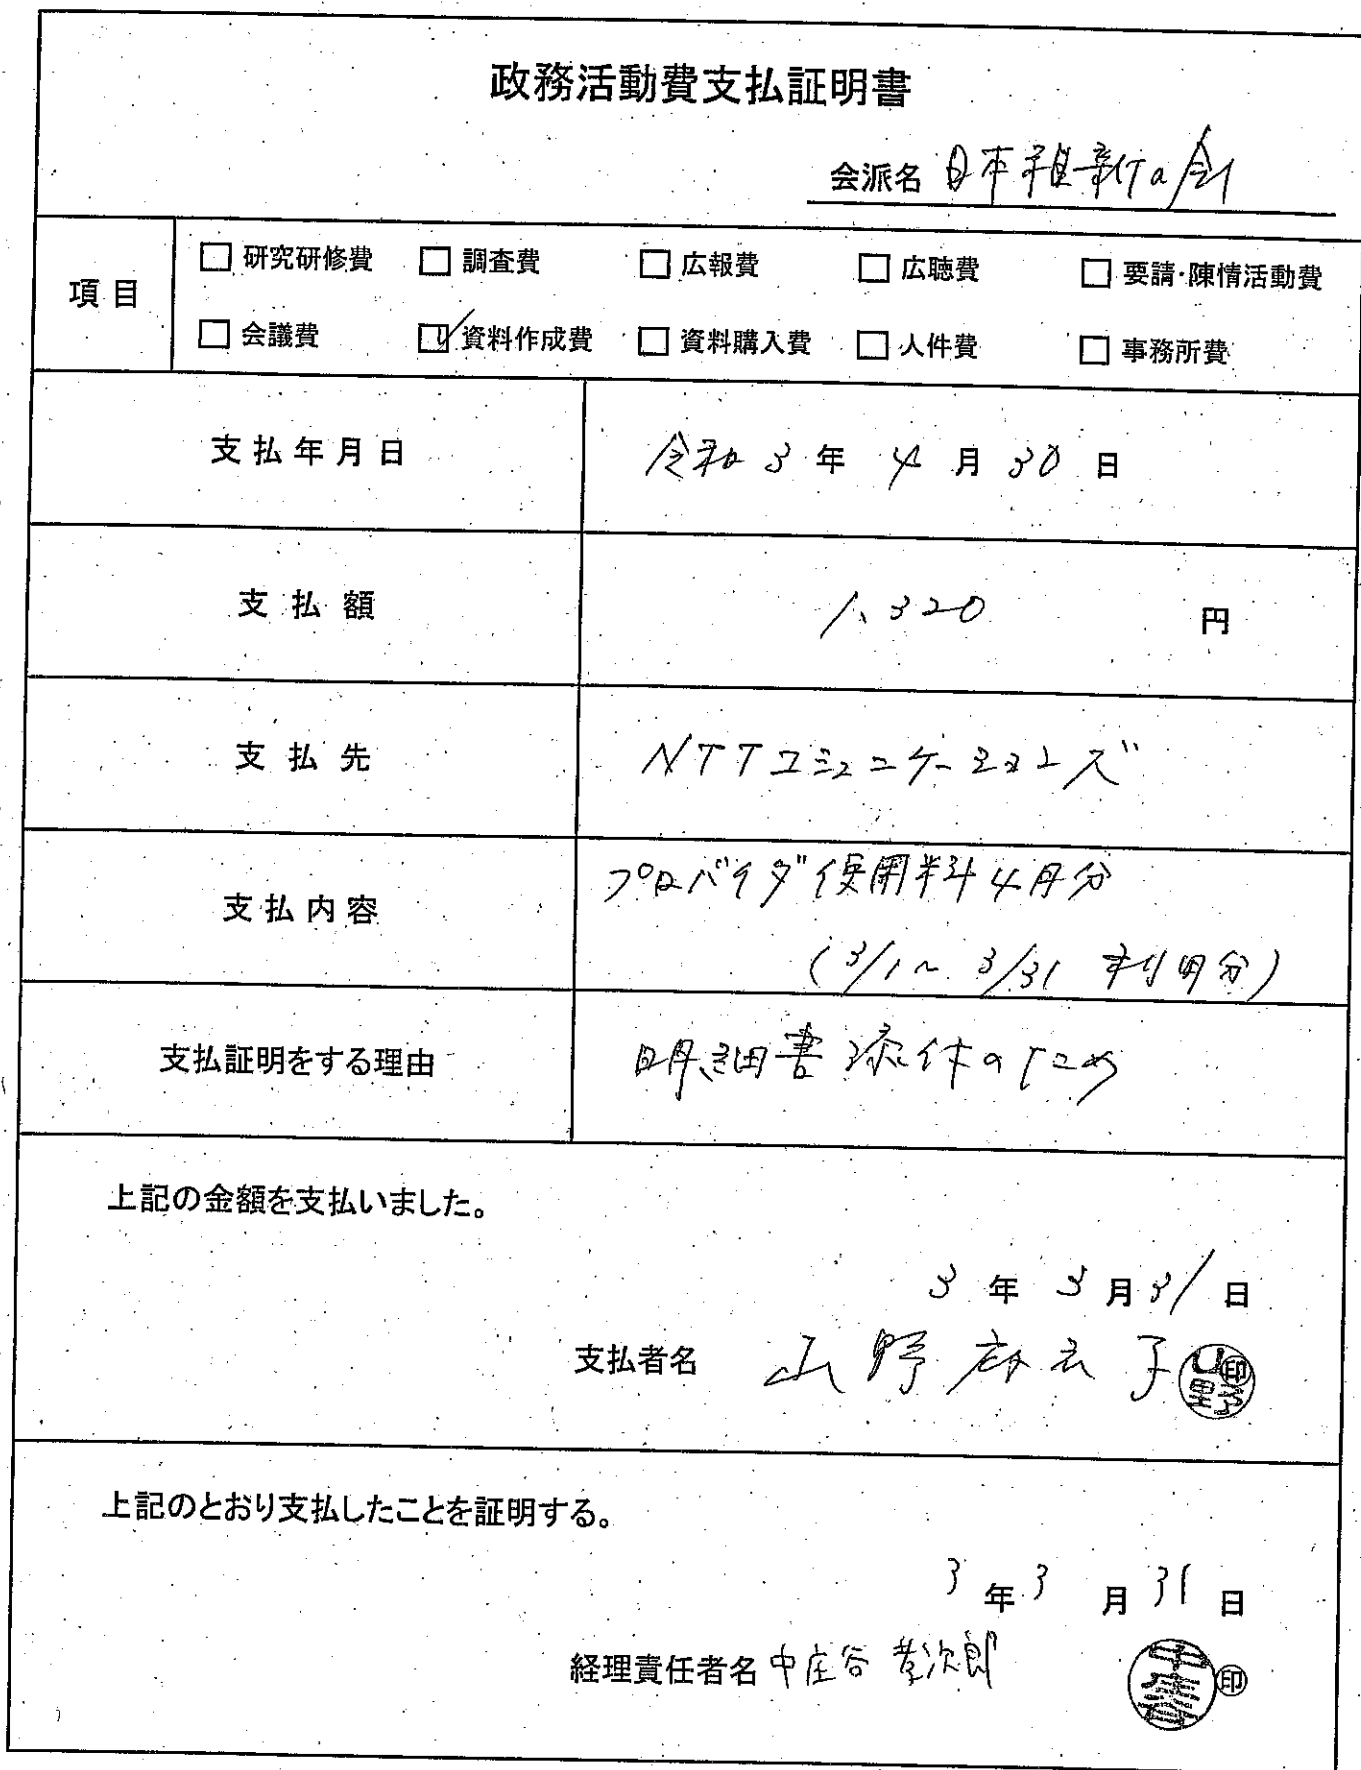 政務活動費支払証明書
会派名 日本維新の会
項目
□ 研究研修費 □ 調査費 □ 広報費 □ 広聴費 □ 要請・陳情活動費
□ 会議費 ☑ 資料作成費 □ 資料購入費 □ 人件費 □ 事務所費
支払年月日 令和 3 年 4 月 30 日
支払額 1,320 円
支払先 NTTコミュニケーションズ
支払内容 プロバイダ使用料4月分
(3/1~3/31 利用分)
支払証明をする理由 明細書添付のため
上記の金額を支払いました。
3 年 3 月 31 日
支払者名 山野麻衣子 印
山野
上記のとおり支払したことを証明する。
3 年 3 月 31 日
経理責任者名 中庄谷 孝次郎 印
中庄谷